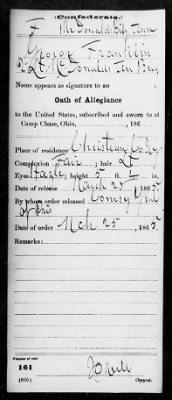 Confederate.
F McDonald's Batty, Tenn
George Franklin
Pvt. McDonald's Ten Bat
Name appears as signature to an
Oath of Allegiance
to the United States, subscribed and sworn to at
Camp Chase, Ohio, , 186
Place of residence Christian Co Ky
Complexion Fair ; hair Lt ;
Eyes Hazle ; height 5 ft. in.
Date of release March 25 1865
By whom order released Comsy Genl
of Pris
Date of order Mch 25 , 1865.
Remarks:
Number of roll:
161
(665) Copyist.